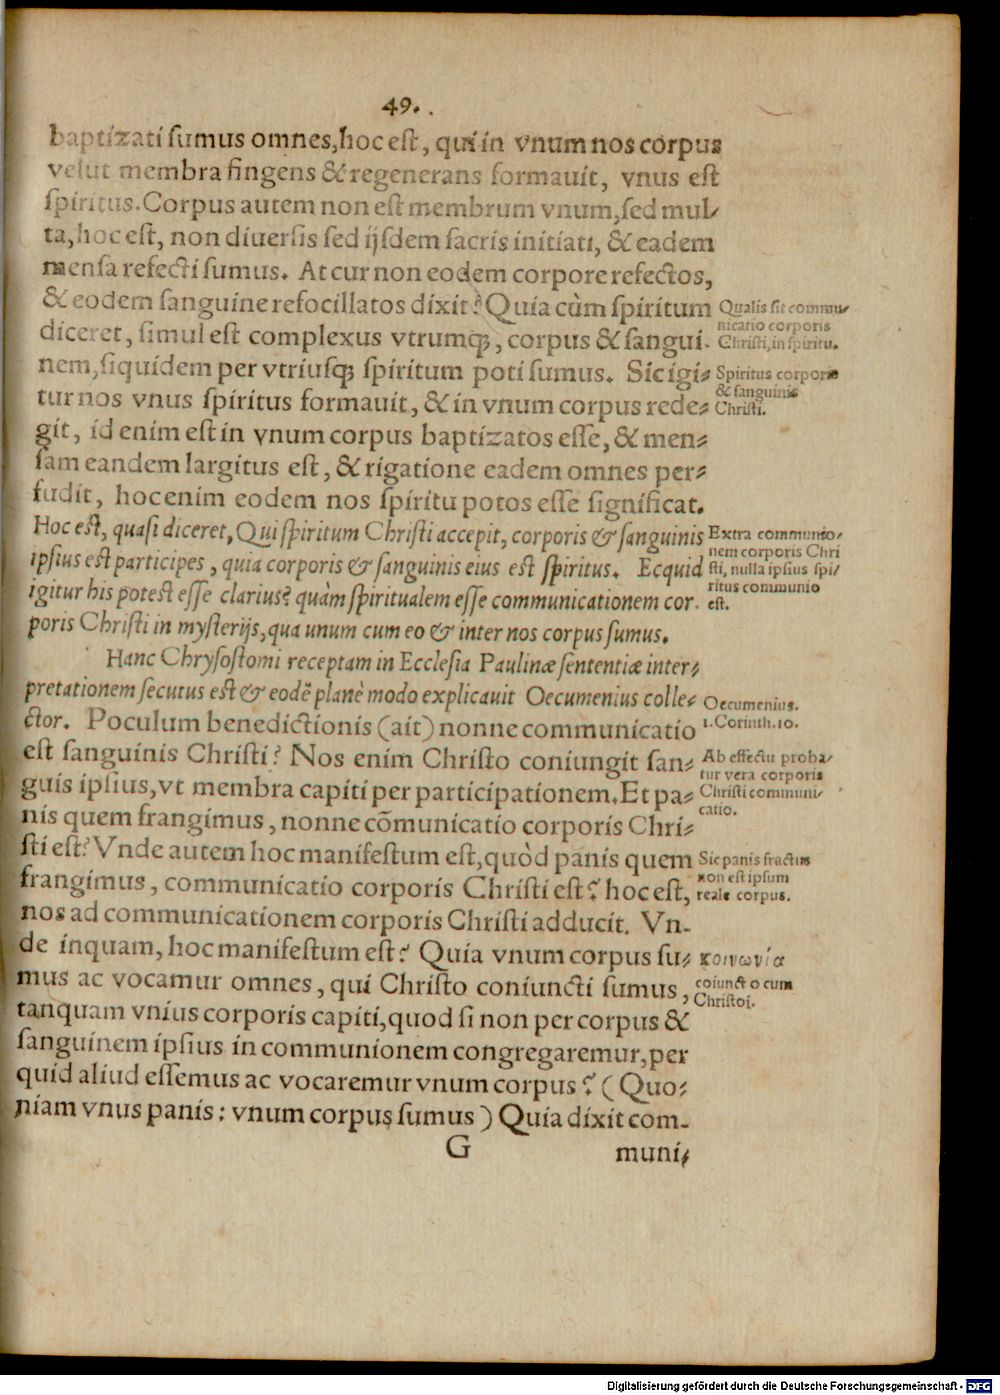 49.
baptizati sumus omnes, hoc est, qui in vnum nos corpus
velut membra fingens & regenerans formauit, vnus est
spiritus. Corpus autem non est membrum vnum, sed mul-
ta, hoc est, non diuersis sed ijsdem sacris initiati, & eadem
mensa refecti sumus. At cur non eodem corpore refectos,
& eodem sanguine refocillatos dixit? Quia cùm spiritum
diceret, simul est complexus vtrumq;, corpus & sangui-
nem, siquidem per vtriusq; spiritum poti sumus. Sic igi-
tur nos vnus spiritus formauit, & in vnum corpus rede-
git, id enim est in vnum corpus baptizatos esse, & men-
sam eandem largitus est, & rigatione eadem omnes per-
fudit, hoc enim eodem nos spiritu potos esse significat.
Hoc est, quasi diceret, Qui spiritum Christi accepit, corporis & sanguinis
ipsius est participes, quia corporis & sanguinis eius est spiritus. Ecquid
igitur his potest esse clarius? quàm spiritualem esse communicationem cor-
poris Christi in mysterijs, qua unum cum eo & inter nos corpus sumus.
Hanc Chrysostomi receptam in Ecclesia Paulinæ sententiæ inter-
pretationem secutus est & eodē planè modo explicauit Oecumenius colle-
ctor. Poculum benedictionis (ait) nonne communicatio
est sanguinis Christi? Nos enim Christo coniungit san-
guis ipsius, vt membra capiti per participationem. Et pa-
nis quem frangimus, nonne cōmunicatio corporis Chri-
sti est? Vnde autem hoc manifestum est, quòd panis quem
frangimus, communicatio corporis Christi est? hoc est,
nos ad communicationem corporis Christi adducit. Vn-
de inquam, hoc manifestum est? Quia vnum corpus su-
mus ac vocamur omnes, qui Christo coniuncti sumus,
tanquam vnius corporis capiti, quod si non per corpus &
sanguinem ipsius in communionem congregaremur, per
quid aliud essemus ac vocaremur vnum corpus? (Quo-
niam vnus panis: vnum corpus sumus) Quia dixit com-
G
muni-
Qualis sit commu-
nicatio corporis
Christi, in spiritu.
Spiritus corporis
& sanguinis
Christi.
Extra communio-
nem corporis Chri
sti, nulla ipsius spi-
ritus communio
est.
Oecumenius.
1. Corinth. 10.
Ab effectu proba-
tur vera corporis
Christi communi-
catio.
Sic panis fractus
non est ipsum
reale corpus.
κοινωνία
coiuncto cum
Christoj.
Digitalisierung gefördert durch die Deutsche Forschungsgemeinschaft - DFG